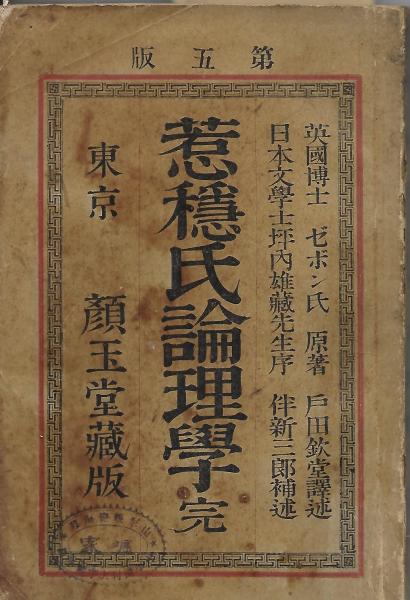 第五版
英國博士 ゼボン氏 原著 戸田欽堂譯述
日本文學士坪內雄藏先生序 伴新三郎補述
惹穩氏論理學 完
東京 顏玉堂藏版